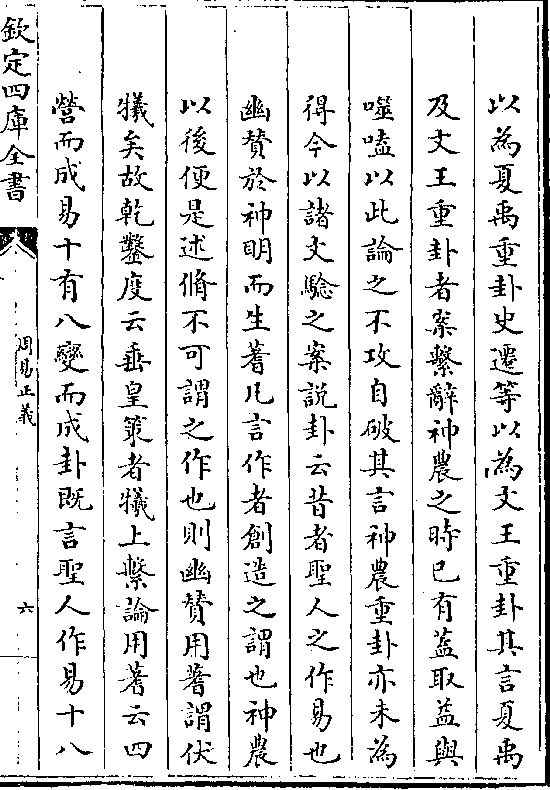 以為夏禹重卦史遷等以為文王重卦其言夏禹
及文王重卦者案繫辭神農之時已有蓋取益與
噬嗑以此論之不攻自破其言神農重卦亦未為
得今以諸文驗之案說卦云昔者聖人之作易也
幽賛於神明而生蓍凡言作者創造之謂也神農
以後便是述脩不可謂之作也則幽賛用蓍謂伏
犧矣故乾鑿度云垂皇策者犧上繫論用蓍云四
營而成易十有八變而成卦既言聖人作易十八
欽定四庫全書
周易正義
六